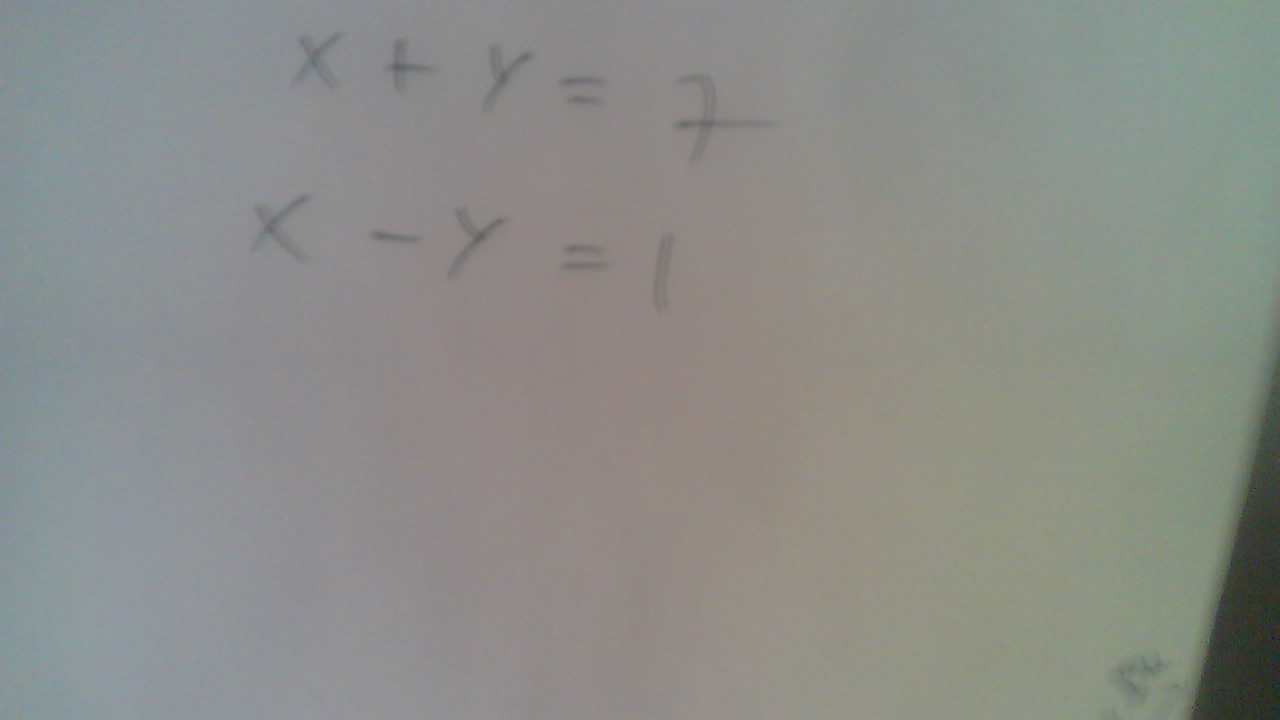 x + y = 7
x - y = 1